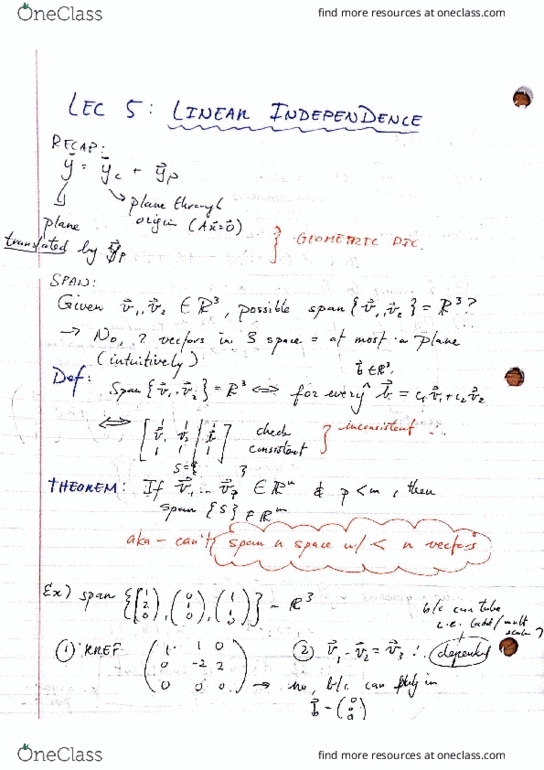 OneClass
find more resources at oneclass.com
LEC 5: LINEAR INDEPENDENCE
RECAP:
y = y_c + y_p
plane through
origin (Ax=0)
plane
translated by y_p
} GEOMETRIC PIC.
SPAN:
Given v₁, v₂ ∈ ℝ³, possible span {v₁, v₂} = ℝ³?
→ No, 2 vectors in 3 space = at most a plane
(intuitively)
b ∈ ℝ³
Def: Span {v₁, v₂} = ℝ³ ⟺ for every ^ b = c₁v₁ + c₂v₂
⟺ [v₁ v₂ | b] check
consistent } inconsistent
S={ }
THEOREM: If v₁ ... v_p ∈ ℝⁿ & p < n, then
span {S} ≠ ℝⁿ
aka - can't span n space w/ < n vectors
Ex) span {[1 2 0], (0 1 0), (1 1 0)} = ℝ³
b/c can
(add/mult
① RREF
② v₁ - v₂ = v₃ ∴ dependent
( 1 1 0
0 -2 2
0 0 0 )
→ no, b/c can plug in
b = (0 0
OneClass
find more resources at oneclass.com